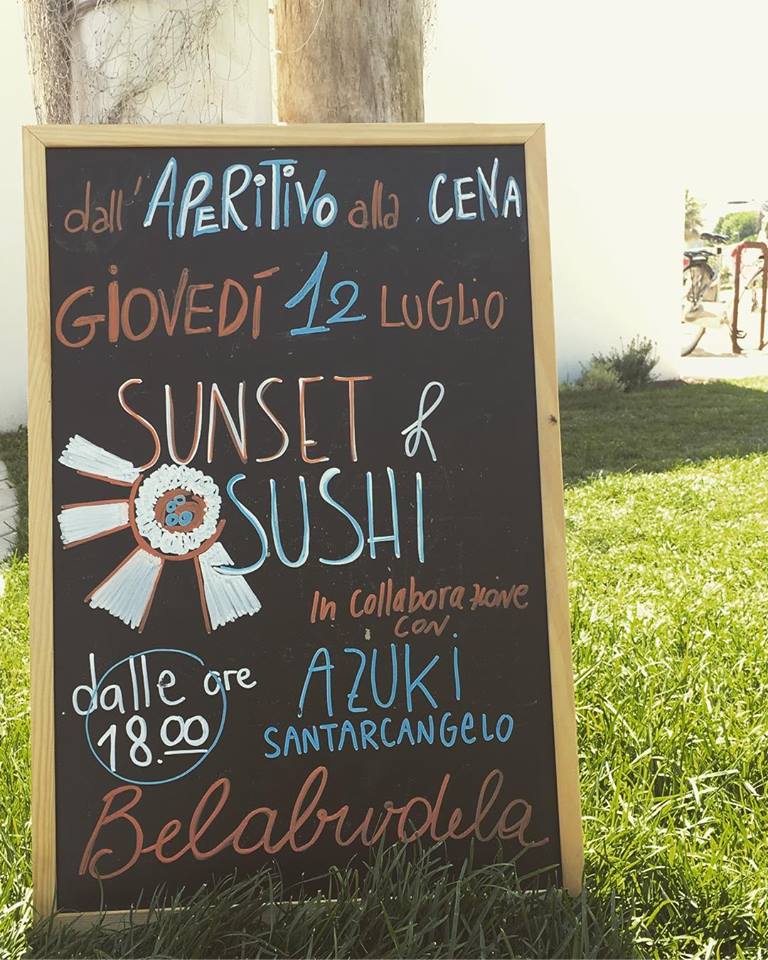 dall'APERiTiVo alla CENA
GiOVEDÍ 12 LUGLiO
SUNSET &
SUSHI
In collaborazione
con
AZUKi
SANTARCANGELO
dalle ore
18.00
Belaburdela